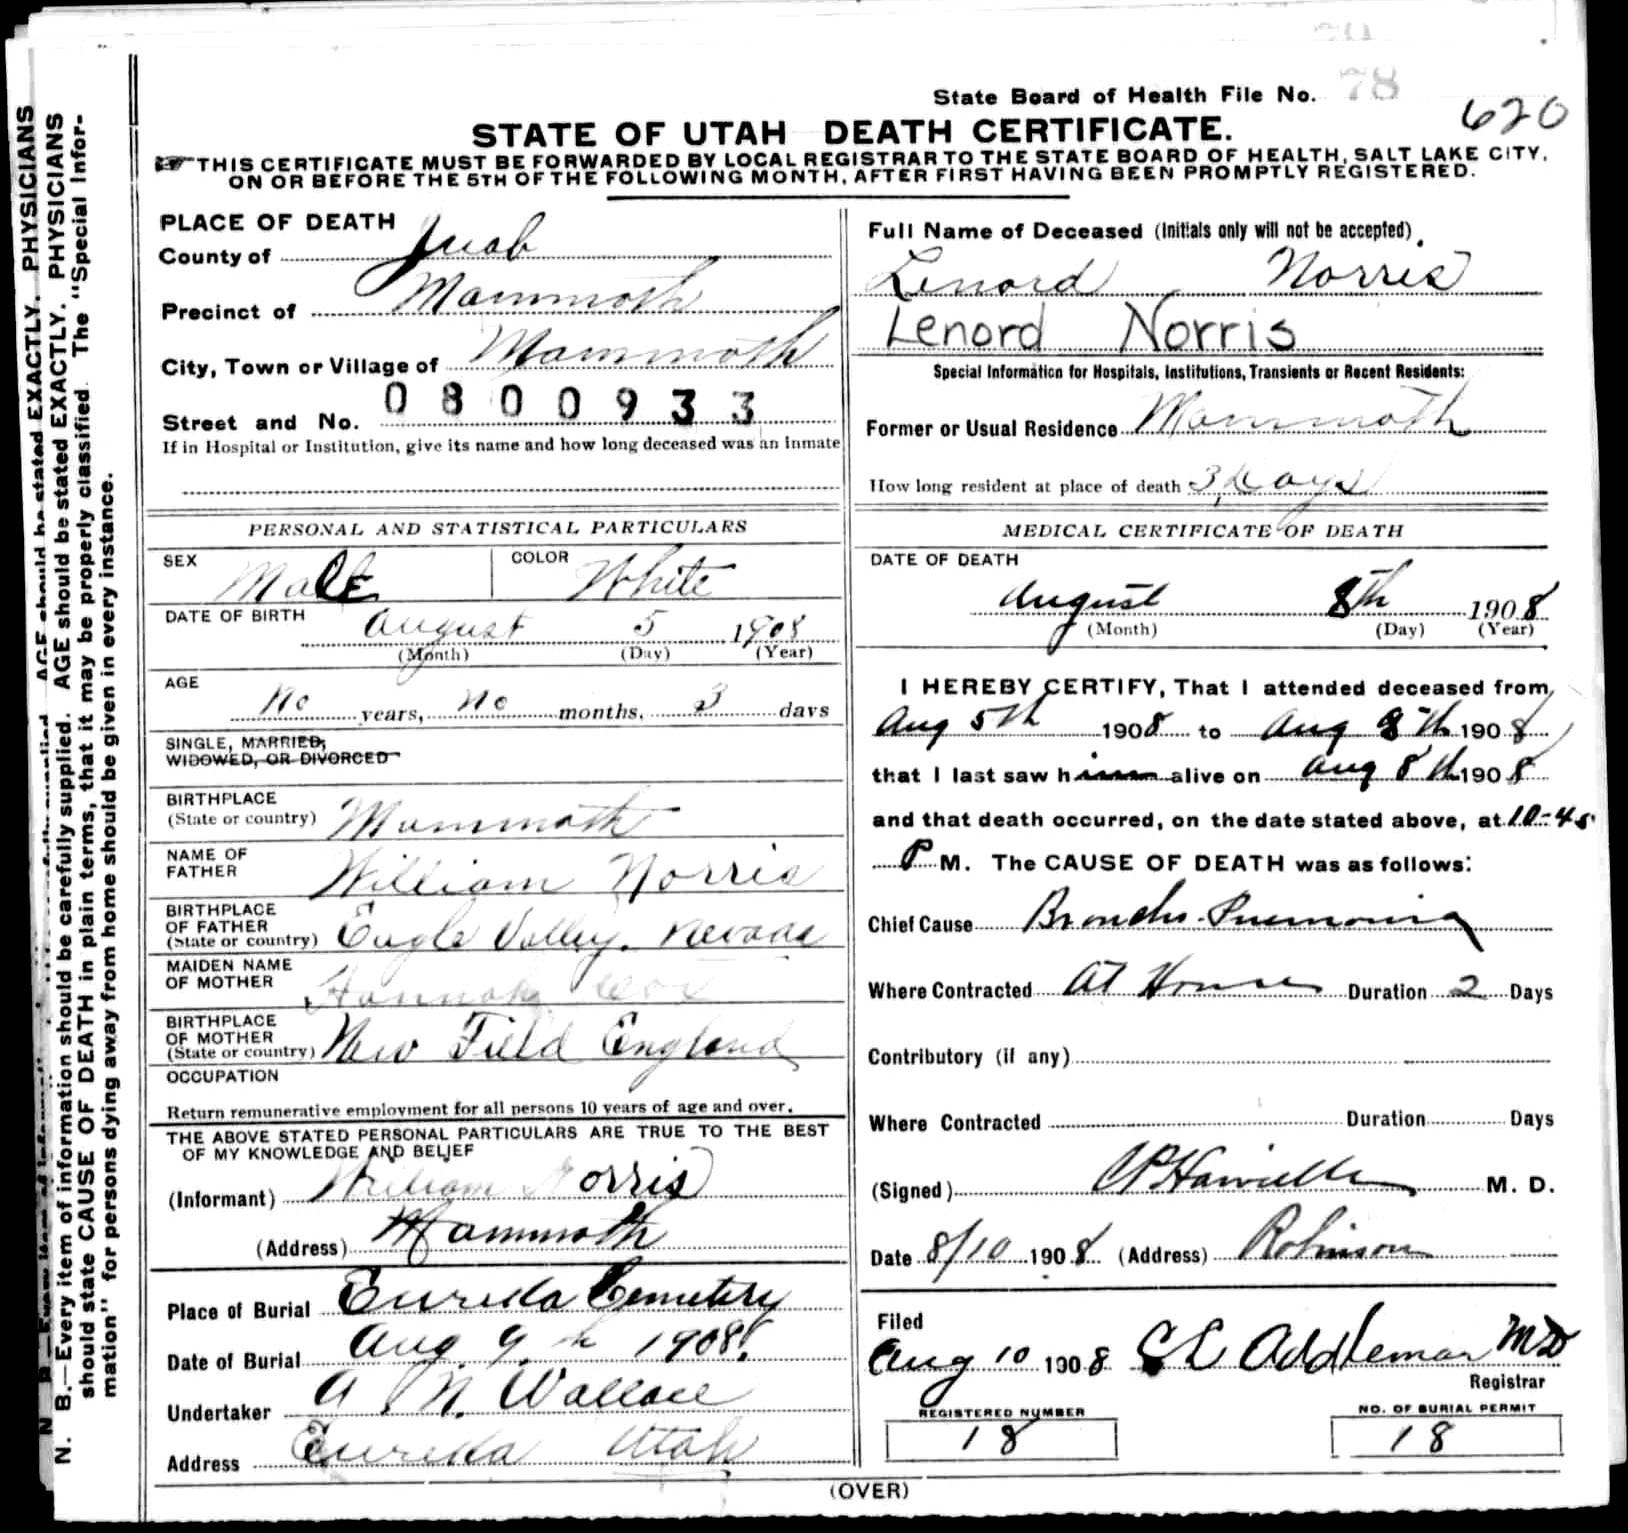 State Board of Health File No. 78
620
STATE OF UTAH DEATH CERTIFICATE.
THIS CERTIFICATE MUST BE FORWARDED BY LOCAL REGISTRAR TO THE STATE BOARD OF HEALTH, SALT LAKE CITY,
ON OR BEFORE THE 5TH OF THE FOLLOWING MONTH, AFTER FIRST HAVING BEEN PROMPTLY REGISTERED.
PLACE OF DEATH
County of Juab
Precinct of Mammoth
City, Town or Village of Mammoth
Street and No. 0800933
If in Hospital or Institution, give its name and how long deceased was an Inmate
PERSONAL AND STATISTICAL PARTICULARS
SEX Male COLOR White
DATE OF BIRTH August 5 1908
(Month) (Day) (Year)
AGE
No years, No months, 3 days
SINGLE, MARRIED,
WIDOWED, OR DIVORCED
BIRTHPLACE
(State or country) Mammoth
NAME OF
FATHER William Norris
BIRTHPLACE
OF FATHER
(State or country) Eagle Valley, Nevada
MAIDEN NAME
OF MOTHER Hannah Cox
BIRTHPLACE
OF MOTHER
(State or country) New Field England
OCCUPATION
Return remunerative employment for all persons 10 years of age and over.
THE ABOVE STATED PERSONAL PARTICULARS ARE TRUE TO THE BEST
OF MY KNOWLEDGE AND BELIEF
(Informant) William Norris
(Address) Mammoth
Place of Burial Eureka Cemetery
Date of Burial Aug 9th 1908.
Undertaker A. N. Wallace
Address Eureka Utah
Full Name of Deceased (Initials only will not be accepted)
Lenord Norris
Lenord Norris
Special Information for Hospitals, Institutions, Transients or Recent Residents:
Former or Usual Residence Mammoth
How long resident at place of death 3 days
MEDICAL CERTIFICATE OF DEATH
DATE OF DEATH
August 8th 1908
(Month) (Day) (Year)
I HEREBY CERTIFY, That I attended deceased from
Aug 5th 1908 to Aug 8th 1908
that I last saw him alive on Aug 8th 1908
and that death occurred, on the date stated above, at 10-45
P M. The CAUSE OF DEATH was as follows:
Chief Cause Broncho-Pneumonia
Where Contracted At Home Duration 2 Days
Contributory (if any)
Where Contracted Duration Days
(Signed) M. D.
Date 8/10 1908 (Address) Robinson
Filed
Aug 10 1908 Addleman MD
Registrar
REGISTERED NUMBER
18
NO. OF BURIAL PERMIT
18
(OVER)
N. B.—Every item of information should be carefully supplied. AGE should be stated EXACTLY. PHYSICIANS
should state CAUSE OF DEATH in plain terms, that it may be properly classified. The "Special Infor-
mation" for persons dying away from home should be given in every instance.